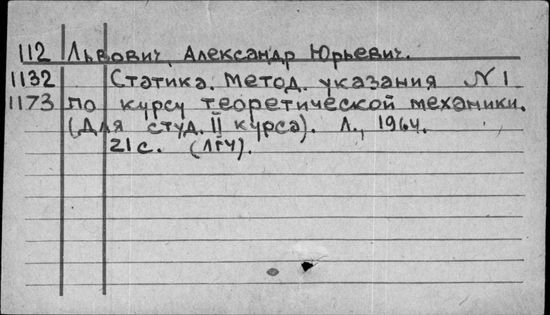 112 Львович, Александр Юрьевич.
1132 Статика. Метод. указания N 1
1173 по курсу теоретической механики.
(Для студ. II курса). Л., 1964.
21 с. (ЛГУ).